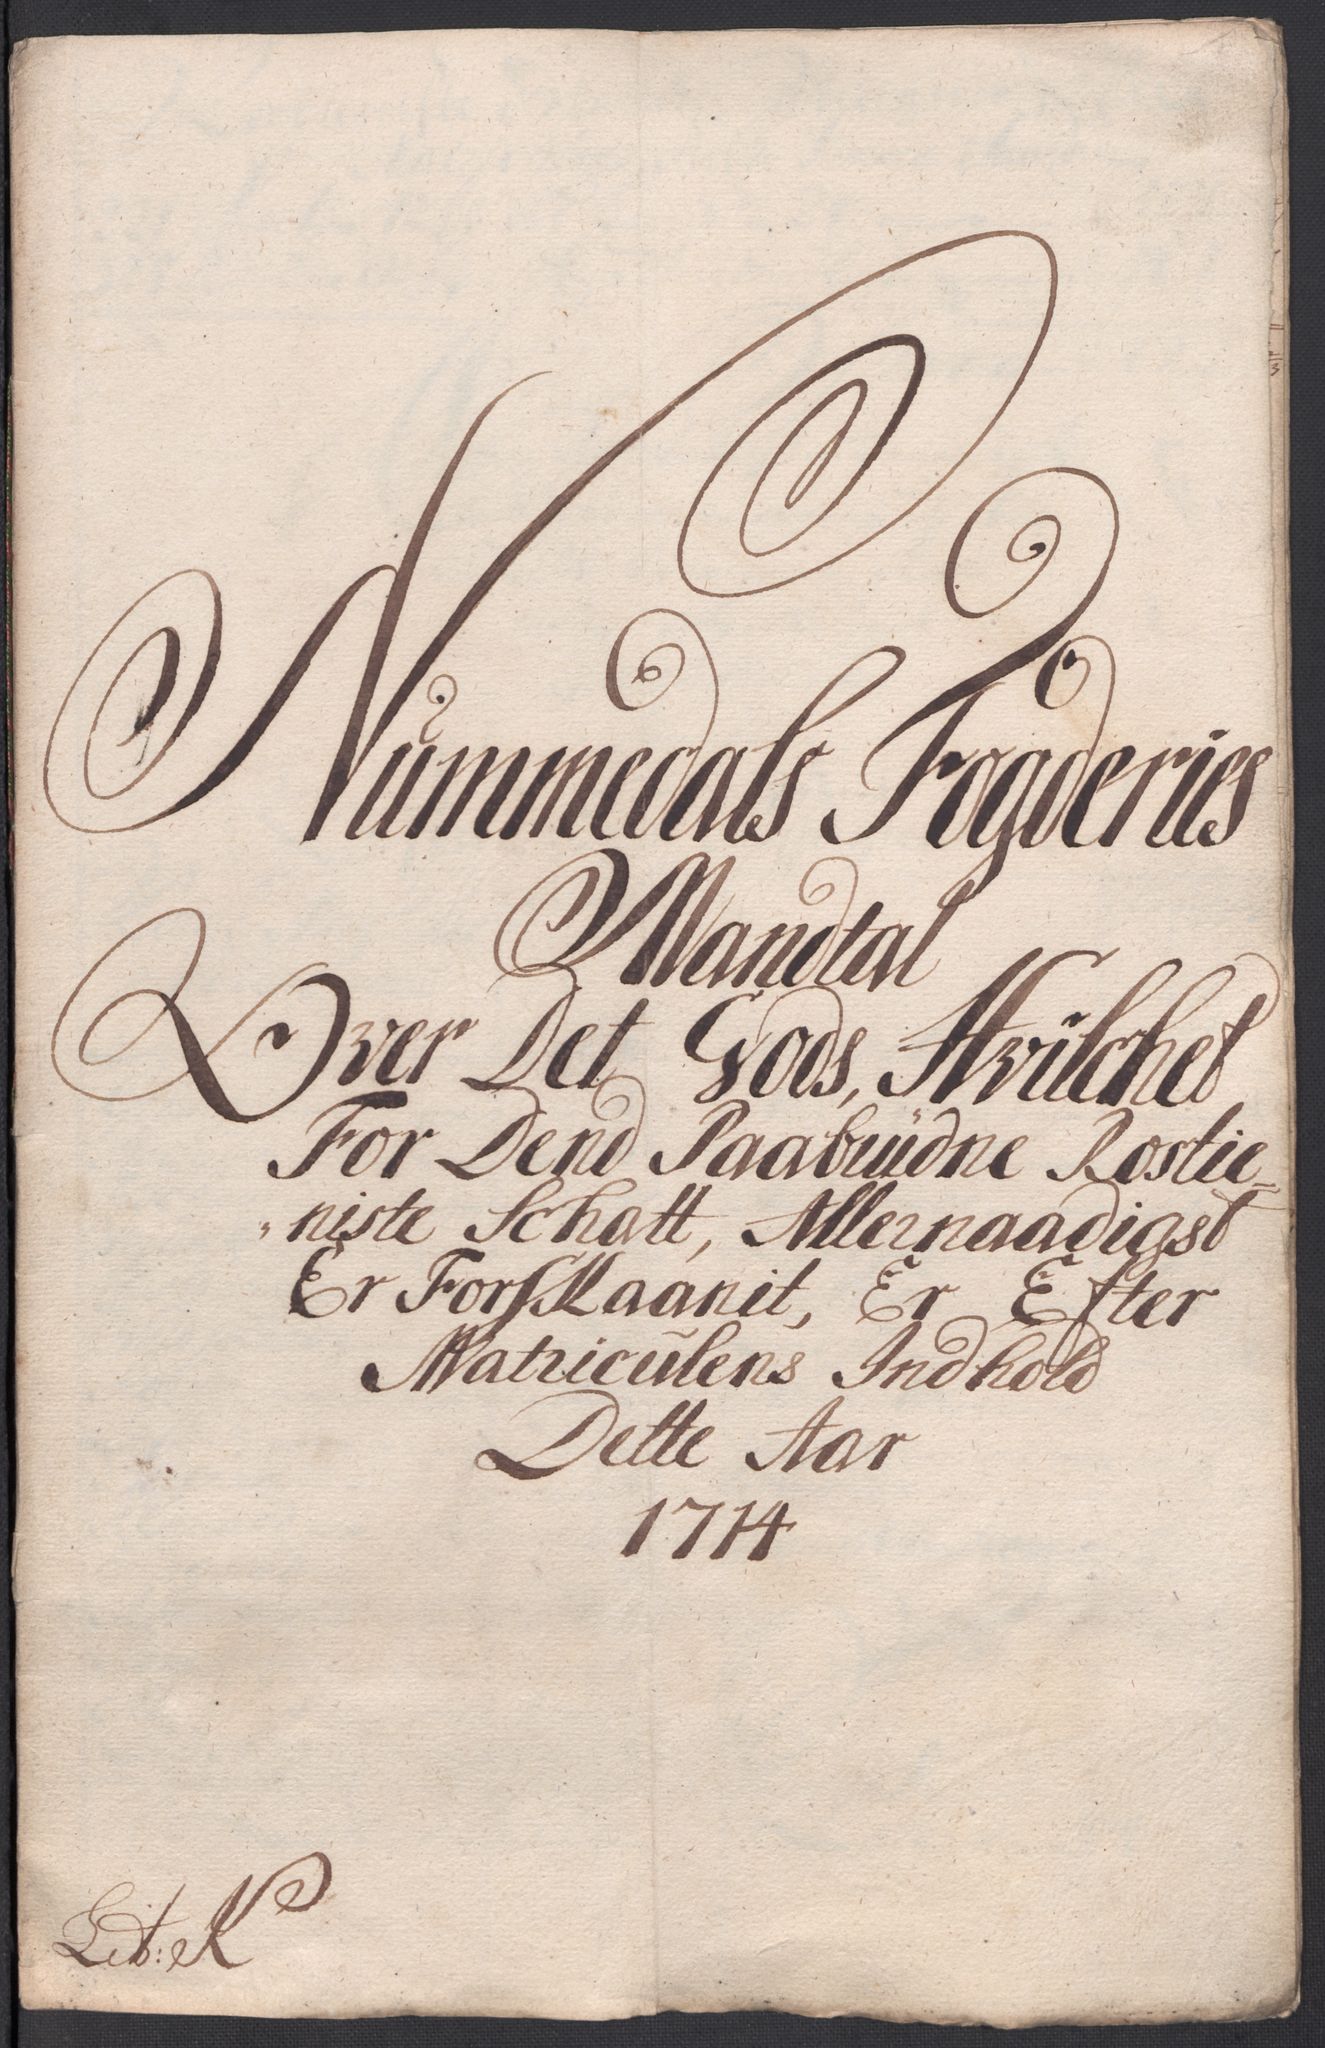 Nummedals Fogderies
Mandtal
Over Det Gods, Hvilchet
For Dend Paabudne Rostie-
niste Schatt, Allernaadigst
Er Forskaanit, Er Efter
Matriculens Indhold
Dette Aar
1714
Lit: K